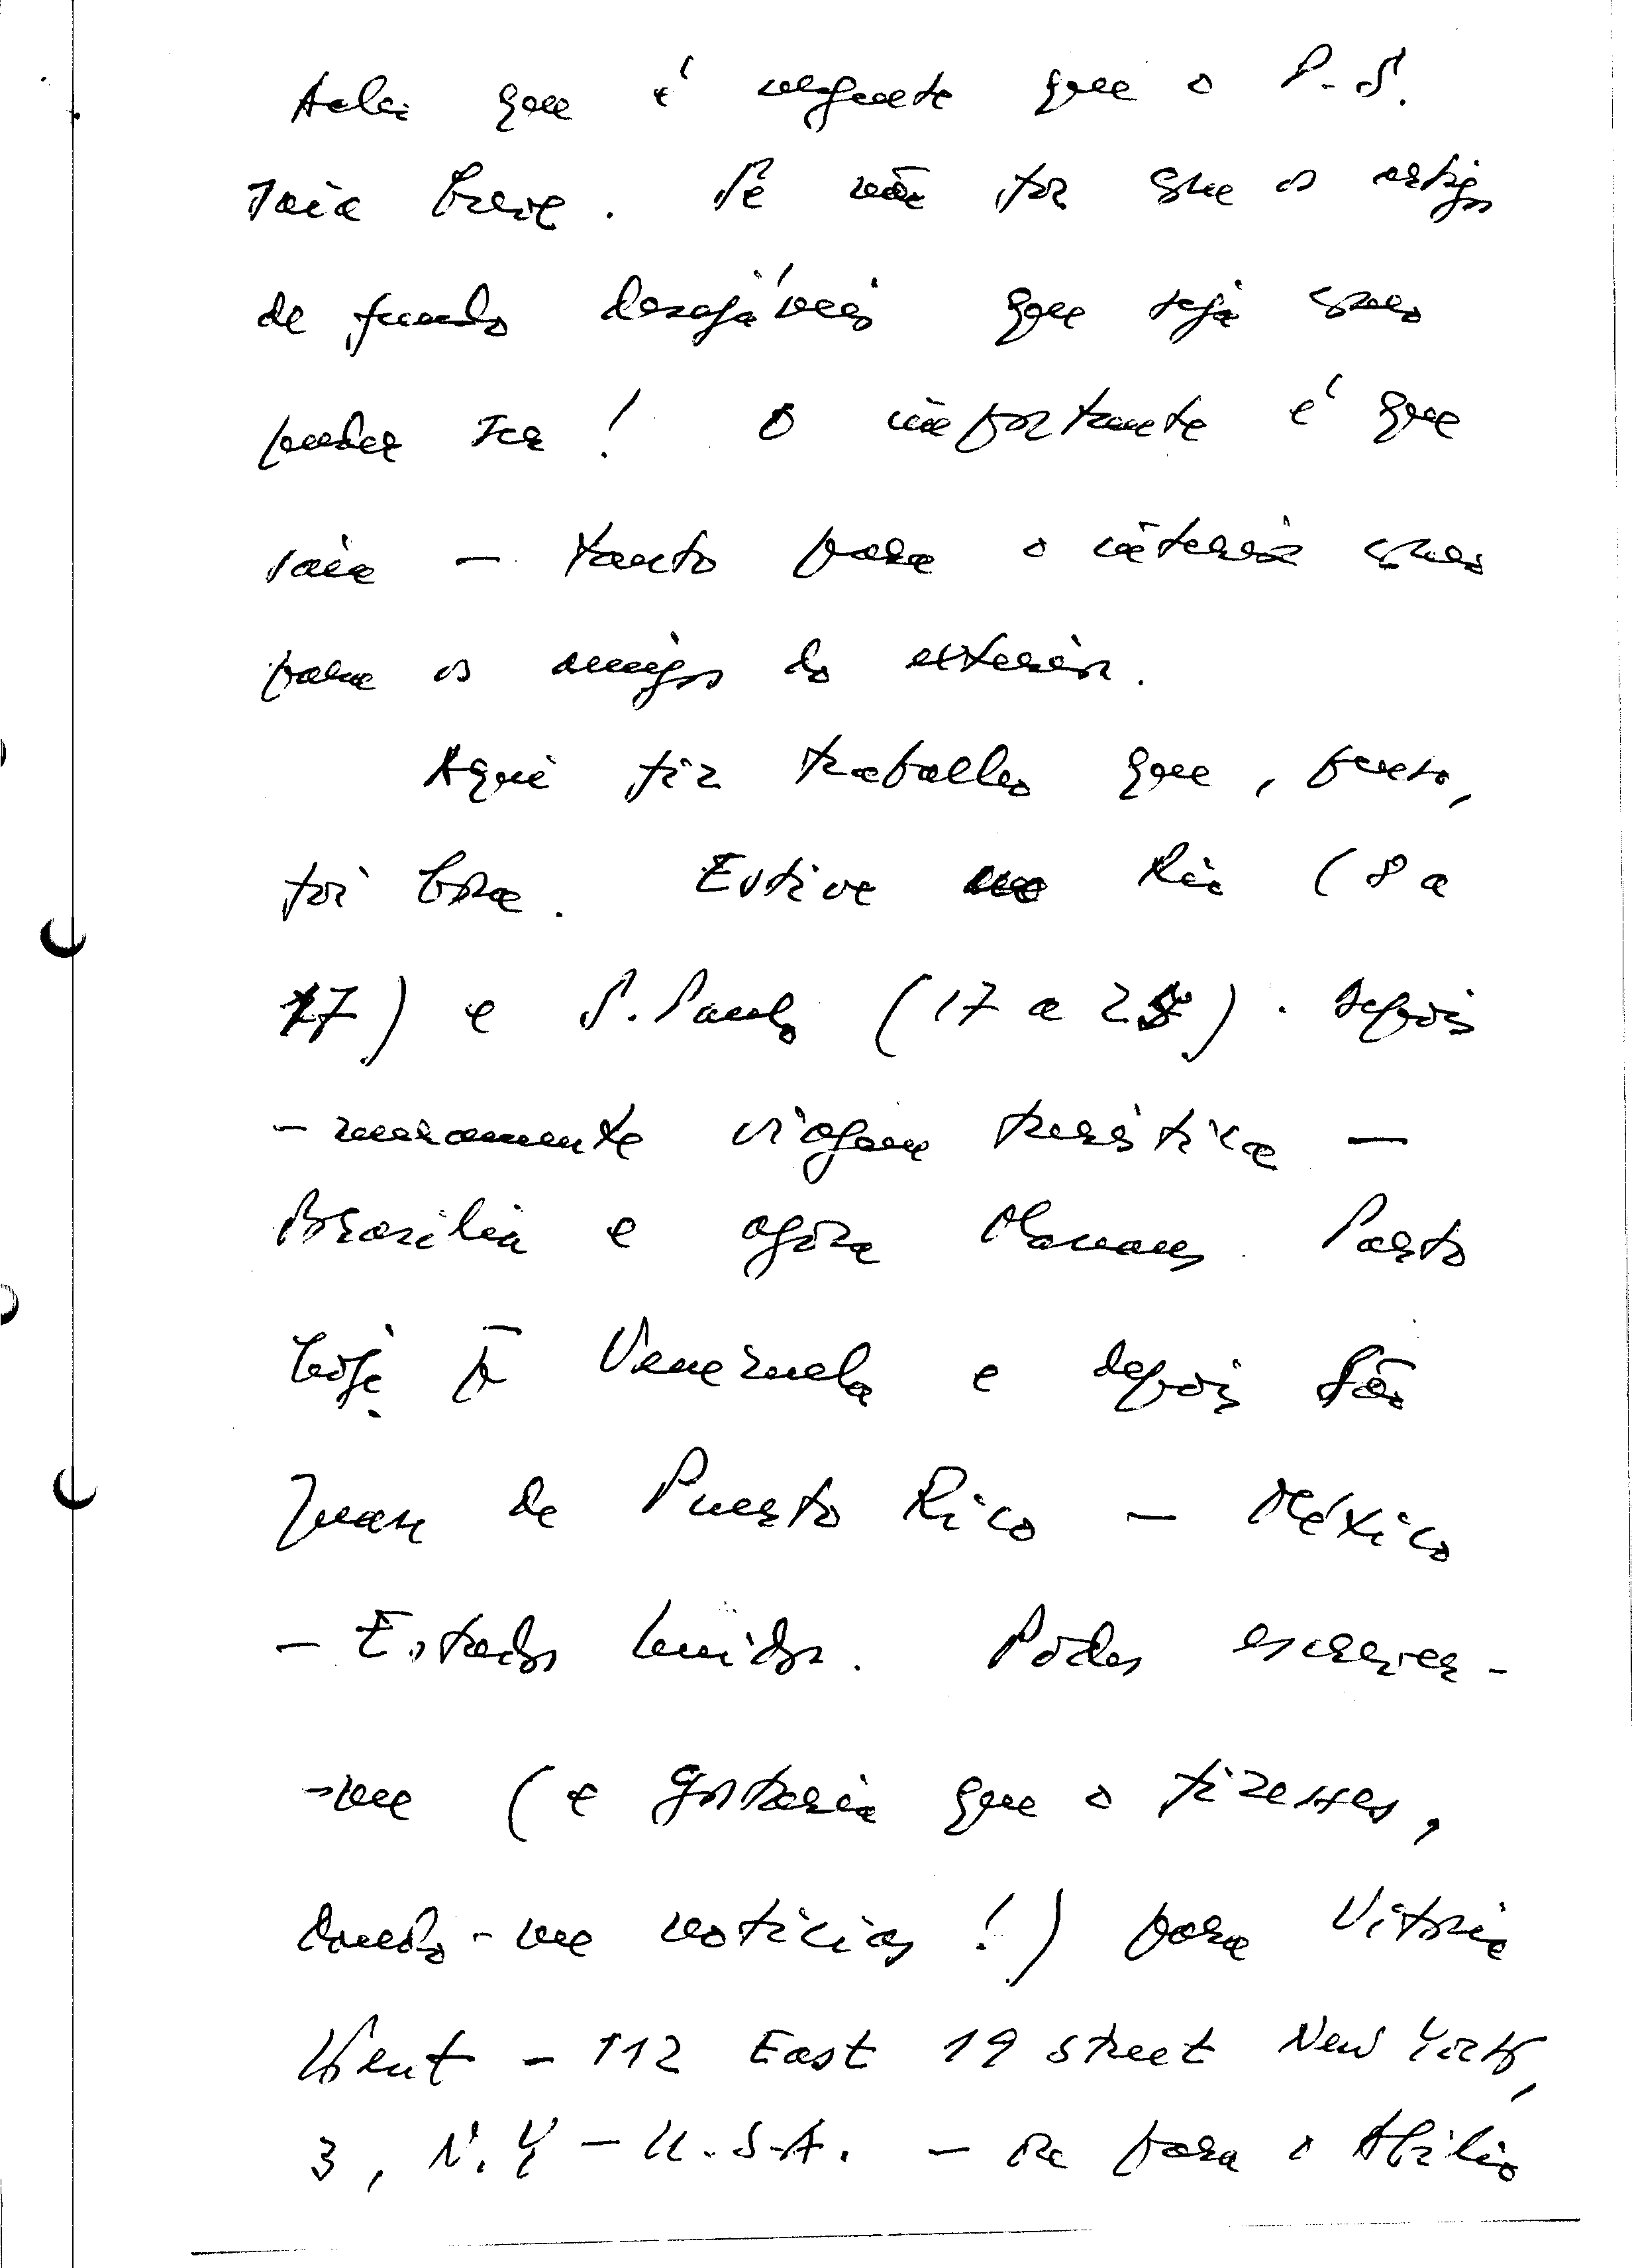 Achei que é urgente que o P.S.
saia breve. Se não for que os artigos
de fundo desejáveis que seja como
puder ser! O importante é que
saia - tanto para o interior como
para os amigos do exterior.
Aqui fiz trabalho que, penso,
foi bom. Estive no Rio (8 a
17) e S. Paulo (17 a 28). Depois
- meramente viagem turística -
Brasília e agora Manaus. Parto
hoje p. Venezuela e depois São
Juan de Puerto Rico - México
- Estados Unidos. Podes escrever-
-me (e gostaria que o fizesses,
dando-me notícias!) para Vitória
Kent - 112 East 19 street New York,
3, N.Y - U.S.A. - ou para o Abílio